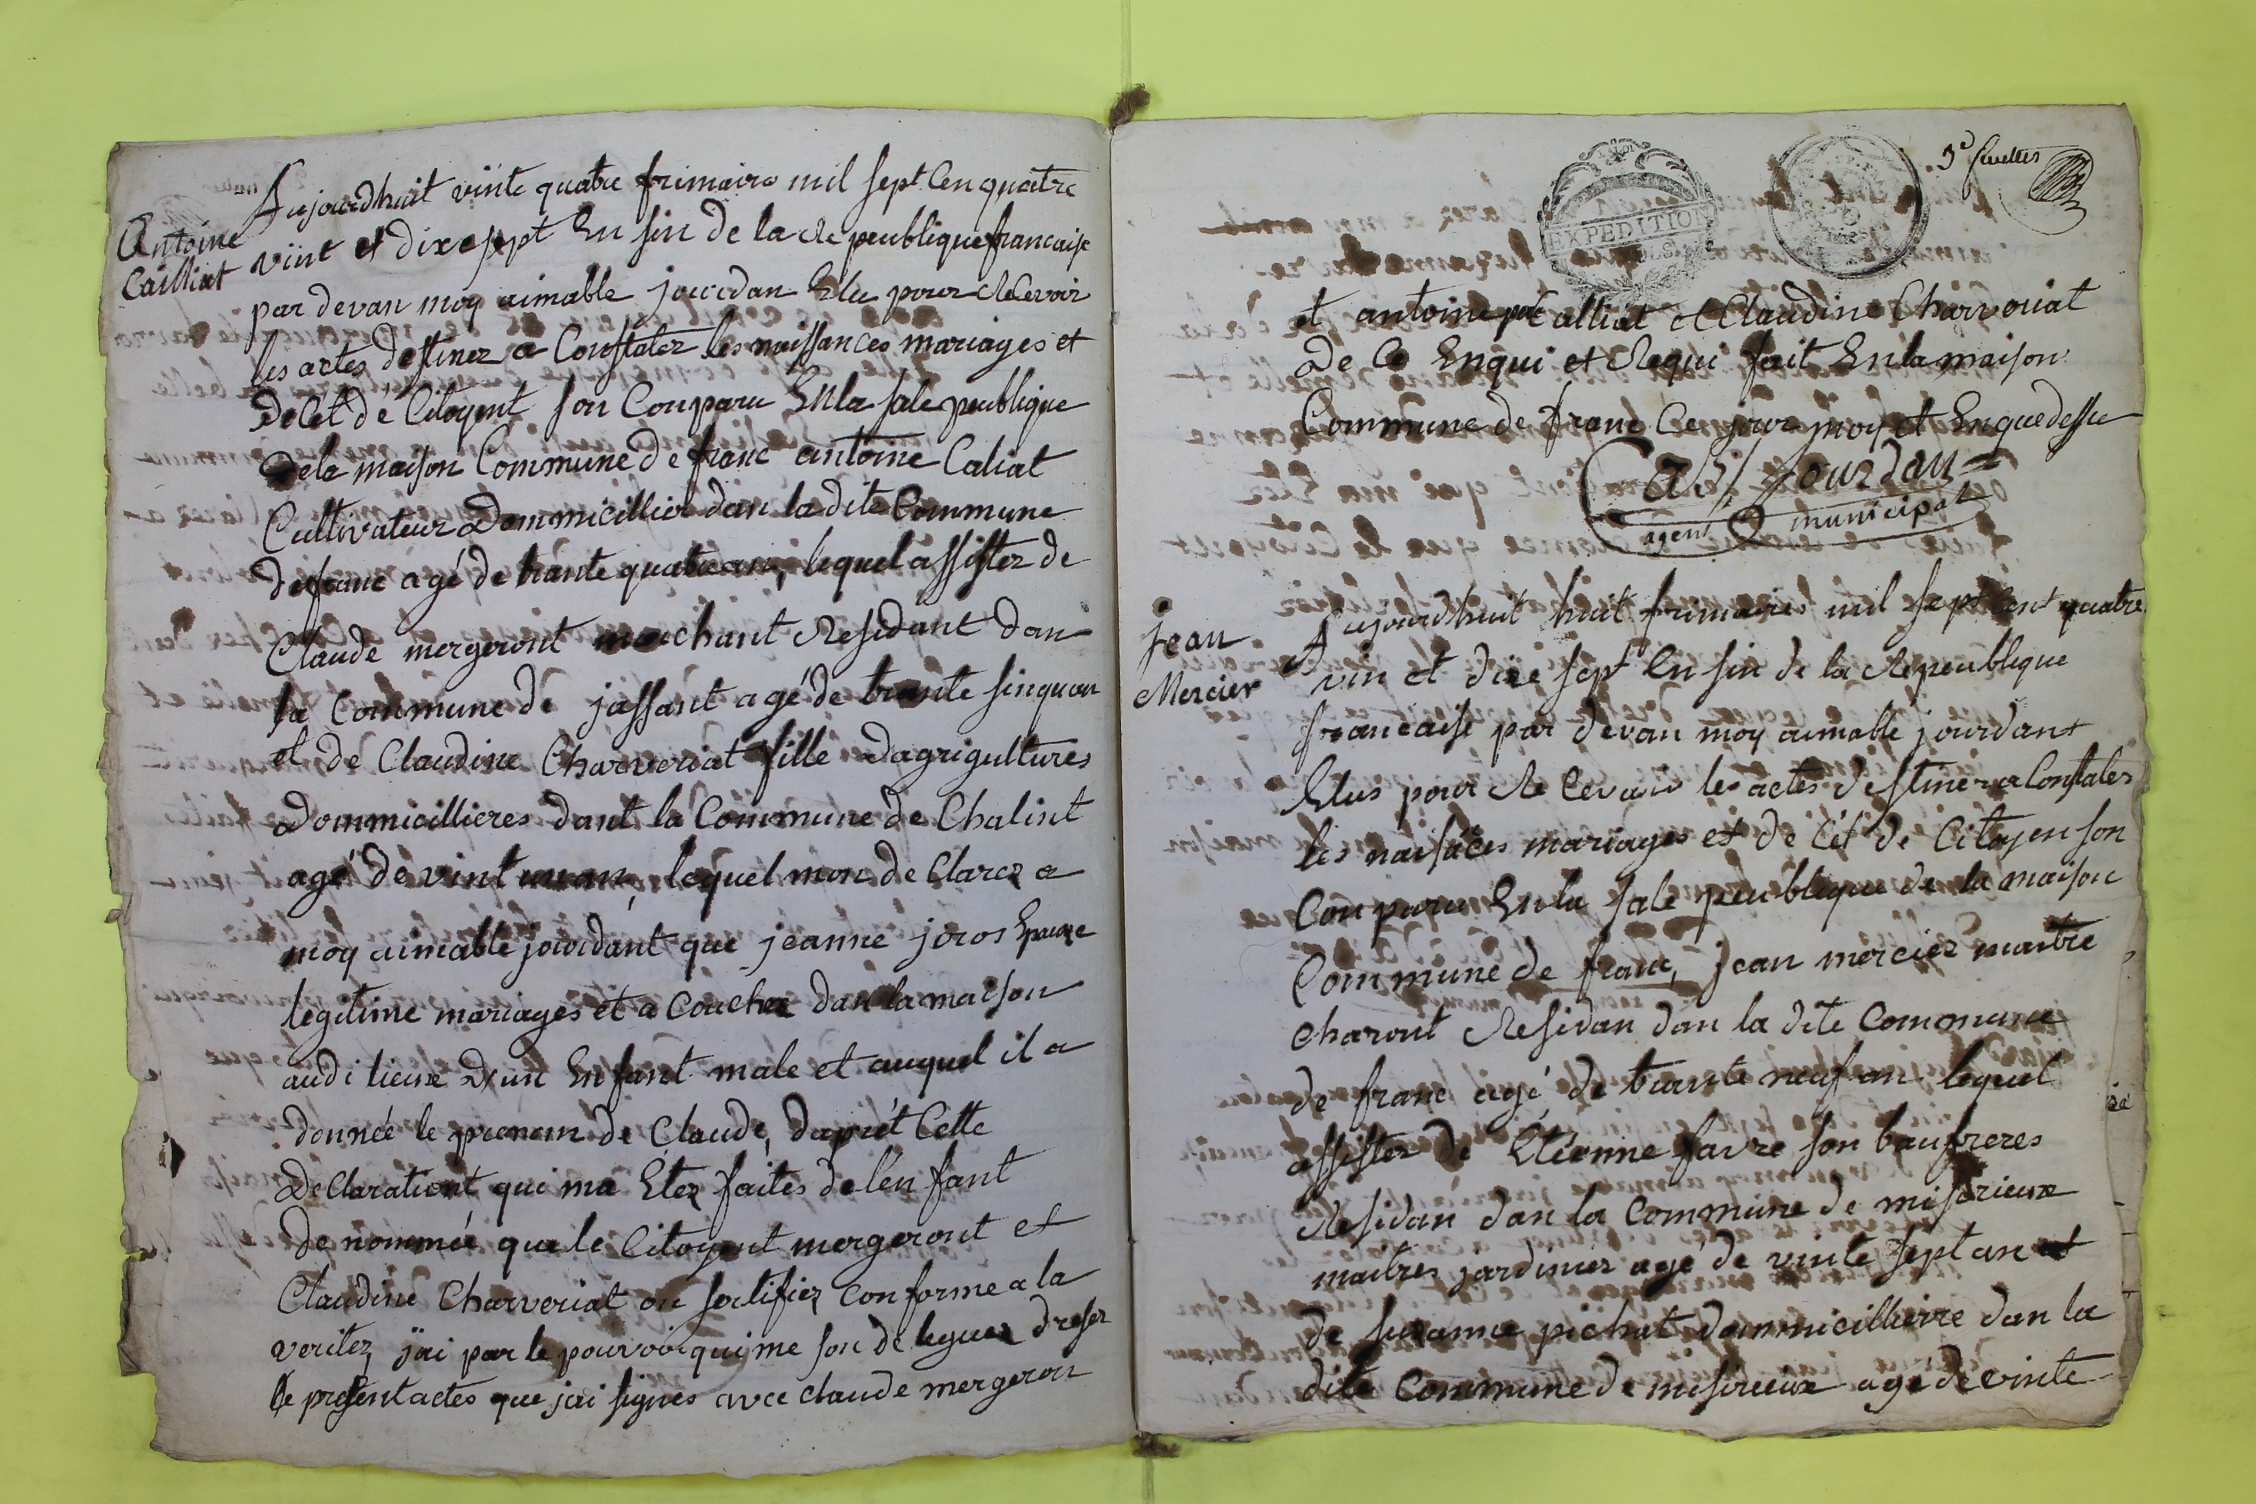 Antoine
Cailliat
Aujourdhuit vinte quatre frimaire mil sept Cen quatre
viint et dixesept En sin de la Repeublique francaise
par devan moy aimable jourdan Elu pour Recevoir
les actes destinez a Constater les naissances mariages et
DeCet dé Citoyent son Conparu EnLa sale peublique
Dela maison Commune de franc antoine Caliat
Cultivateur Dommicillier dan la dite Commune
de franc agé de trante quatre an, lequel assister de
Claude mergeront marchant Residant dan
la Commune de jassant agé de trante sinq an
et de Claudine Charveriat fille dagrigultures
Dommicillieres dant la Commune de Chalint
agé de vint un an, lequel mon de Clarez a
moy aimable jourdant que jeanne joros Epouze
legitime mariages et a Coucher dan la maison
audi lieux D'un Enfant male et auquel il a
donnée le prenom de Claude, daprét Cette
DeClarationt qui ma Etez faites de lenfant
de nommée que le Citoyent mergeront et
Claudine Charveriat on sertifiez Conforme a la
veritez jäi par le pouvoir qui me son de leguez dreser
le present actes que jai signes avec Claude mergeron
EXPEDITION
3e feuilles
et antoine Calliat et Claudine Charvouiat
de Ce Enqui et Requi fait En la maison
Commune de franc Ce jour moy et En que dessu
a J Jourdan
agent municipal
jean
Mercier
Aujourdhuit huit frimaires mil sept Cent quatre
vin et dixe sept En sin de la Republique
francaise par devan moy aimable jourdant
Elus pour Recevoir les actes destiner a Constaler
les naisáces mariages et de Cét de Citoyen son
Conparu En la sale peublique de la maison
Commune de franc, jean mercier maitre
charont Residan dan la dite Commune
de franc agé de trante neuf an lequel
assister de Etienne favre son baufreres
Residan dan la Commune de miserieux
maitres jardinier agé de vinte sept an et
de suzanne pichat dommicillierre dan la
dite Commune de misirieux age de vinte